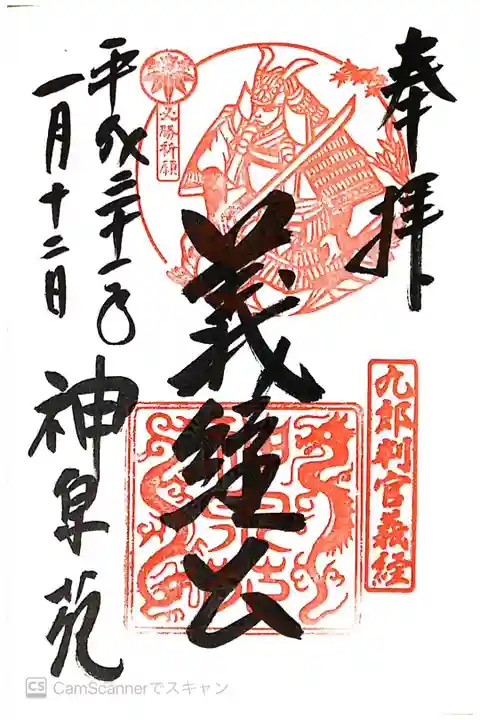 奉拝
九郎判官義経
義経公
必勝祈願
平成三十一年
一月十二日
神泉苑
神泉苑
CS CamScannerでスキャン